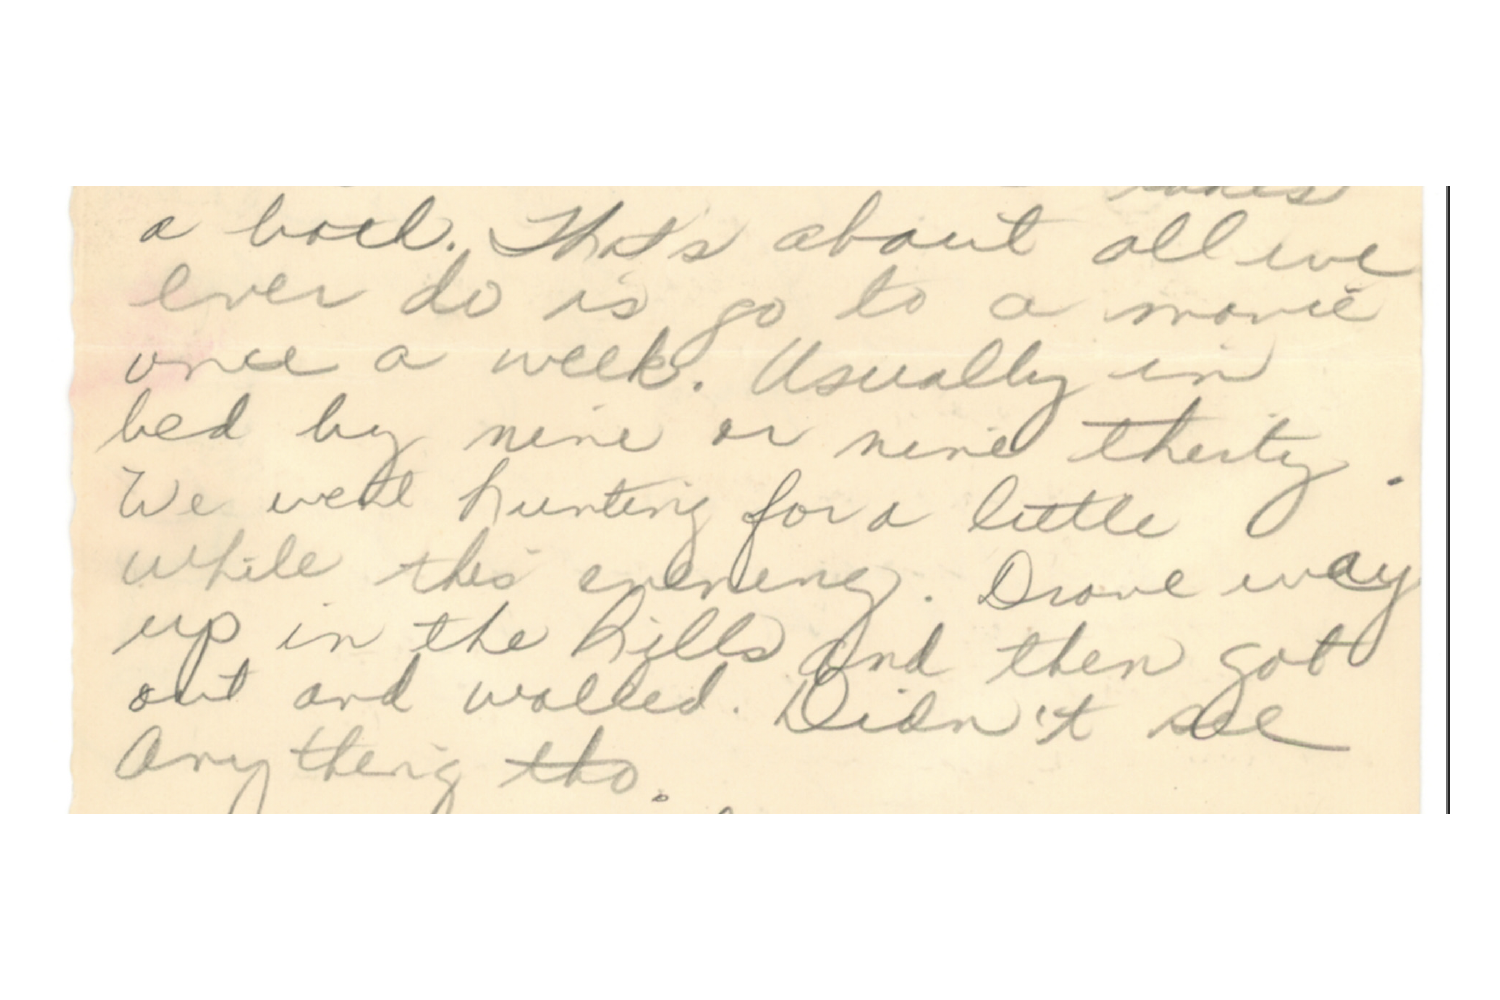 a
That's about all we
ever do is go to a movie
once a week. Usually in
bed by nine or nine thirty.
We went hunting for a little
while this evening. Drove way
up in the hills and then got
out and walked. Didn't see
anything tho.